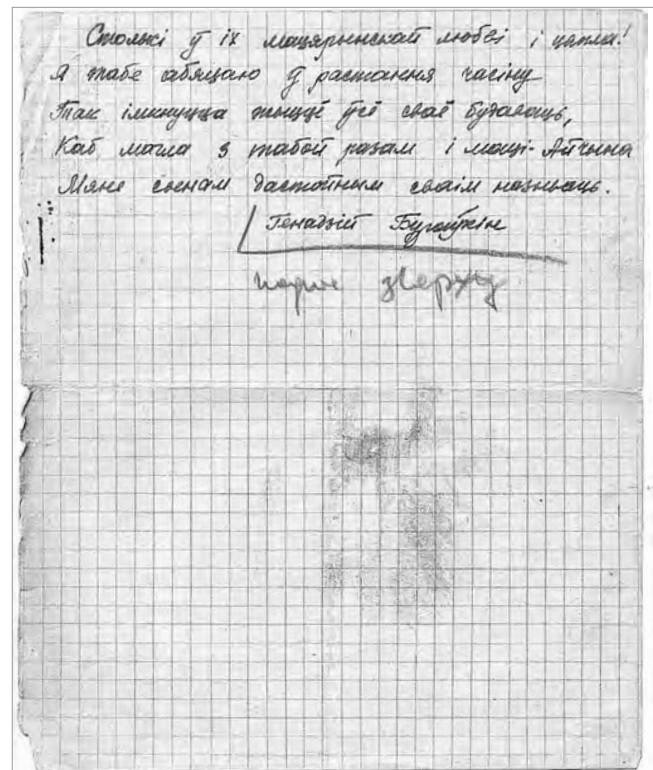 Столькі ў іх мацярынскай любві і цяпла!
Я табе абяцаю ў растання часіну
Так імкнуцца жыццё ўсё сваё будаваць,
Каб магла з табой разам і маці-Айчына
Мяне сынам дастойным сваім называць.
Генадзій Бураўкін
зверху